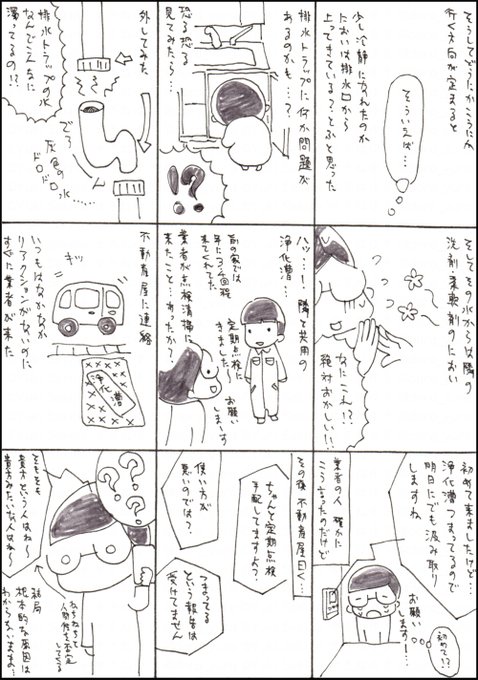 そうしてどうにかこうにか
行くえ向が定まると
そういえば…
少し冷静になれたのか
においは排水口から
上ってきている?とふと思った
排水トラップに何か問題が
あるのかも…?
恐る恐る
見てみたら…
!?
外してみた
でろ…
灰色の
ドロドロ水……
排水トラップの水
なんでこんなに
濁ってるの!?
そしてその水からは隣の
洗剤柔軟剤のにおい
なにこれ!?
絶対おかしい!!
ハッ…!隣と共用の
浄化漕…
前の家では
年に3、4回程
来てくれてた
定期点検に
きました〜
お願い
しまーす
業者が点検清掃に
来たこと…あったか?
不動産屋に連絡
いつもはなかなか
リアクションがないのに
すぐに業者が来た
キッ
浄化漕
初めて来ましたけど…
浄化漕つまってるので
明日にでも汲み取り
しますね
お願い
します…!
初めて!?
業者の人 確かに
こう言ったのだけど
その後不動産屋曰く…
ちゃんと定期点検
手配してますよ?
使い方が
悪いのでは?
つまってる
という報告は
受けてません
???
そもそも
貴方という人はね〜
貴方みたいな人はね〜
ねちねちと
人間性を否定
してくる
結局
根本的な原因は
わからないまま…